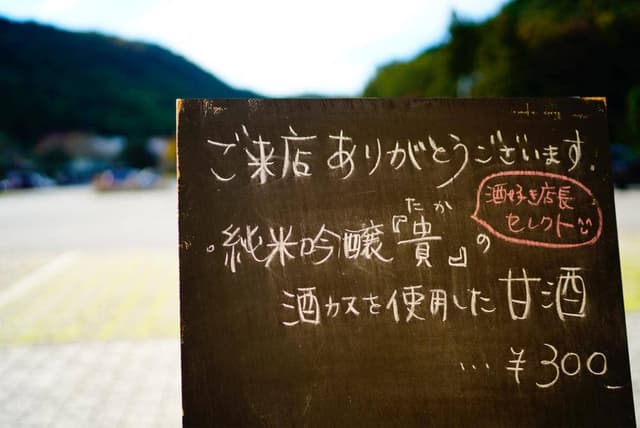 ご来店ありがとうございます.
酒好き店長
セレクト
たか
・純米吟醸『貴』の
酒カスを使用した甘酒
…¥300_